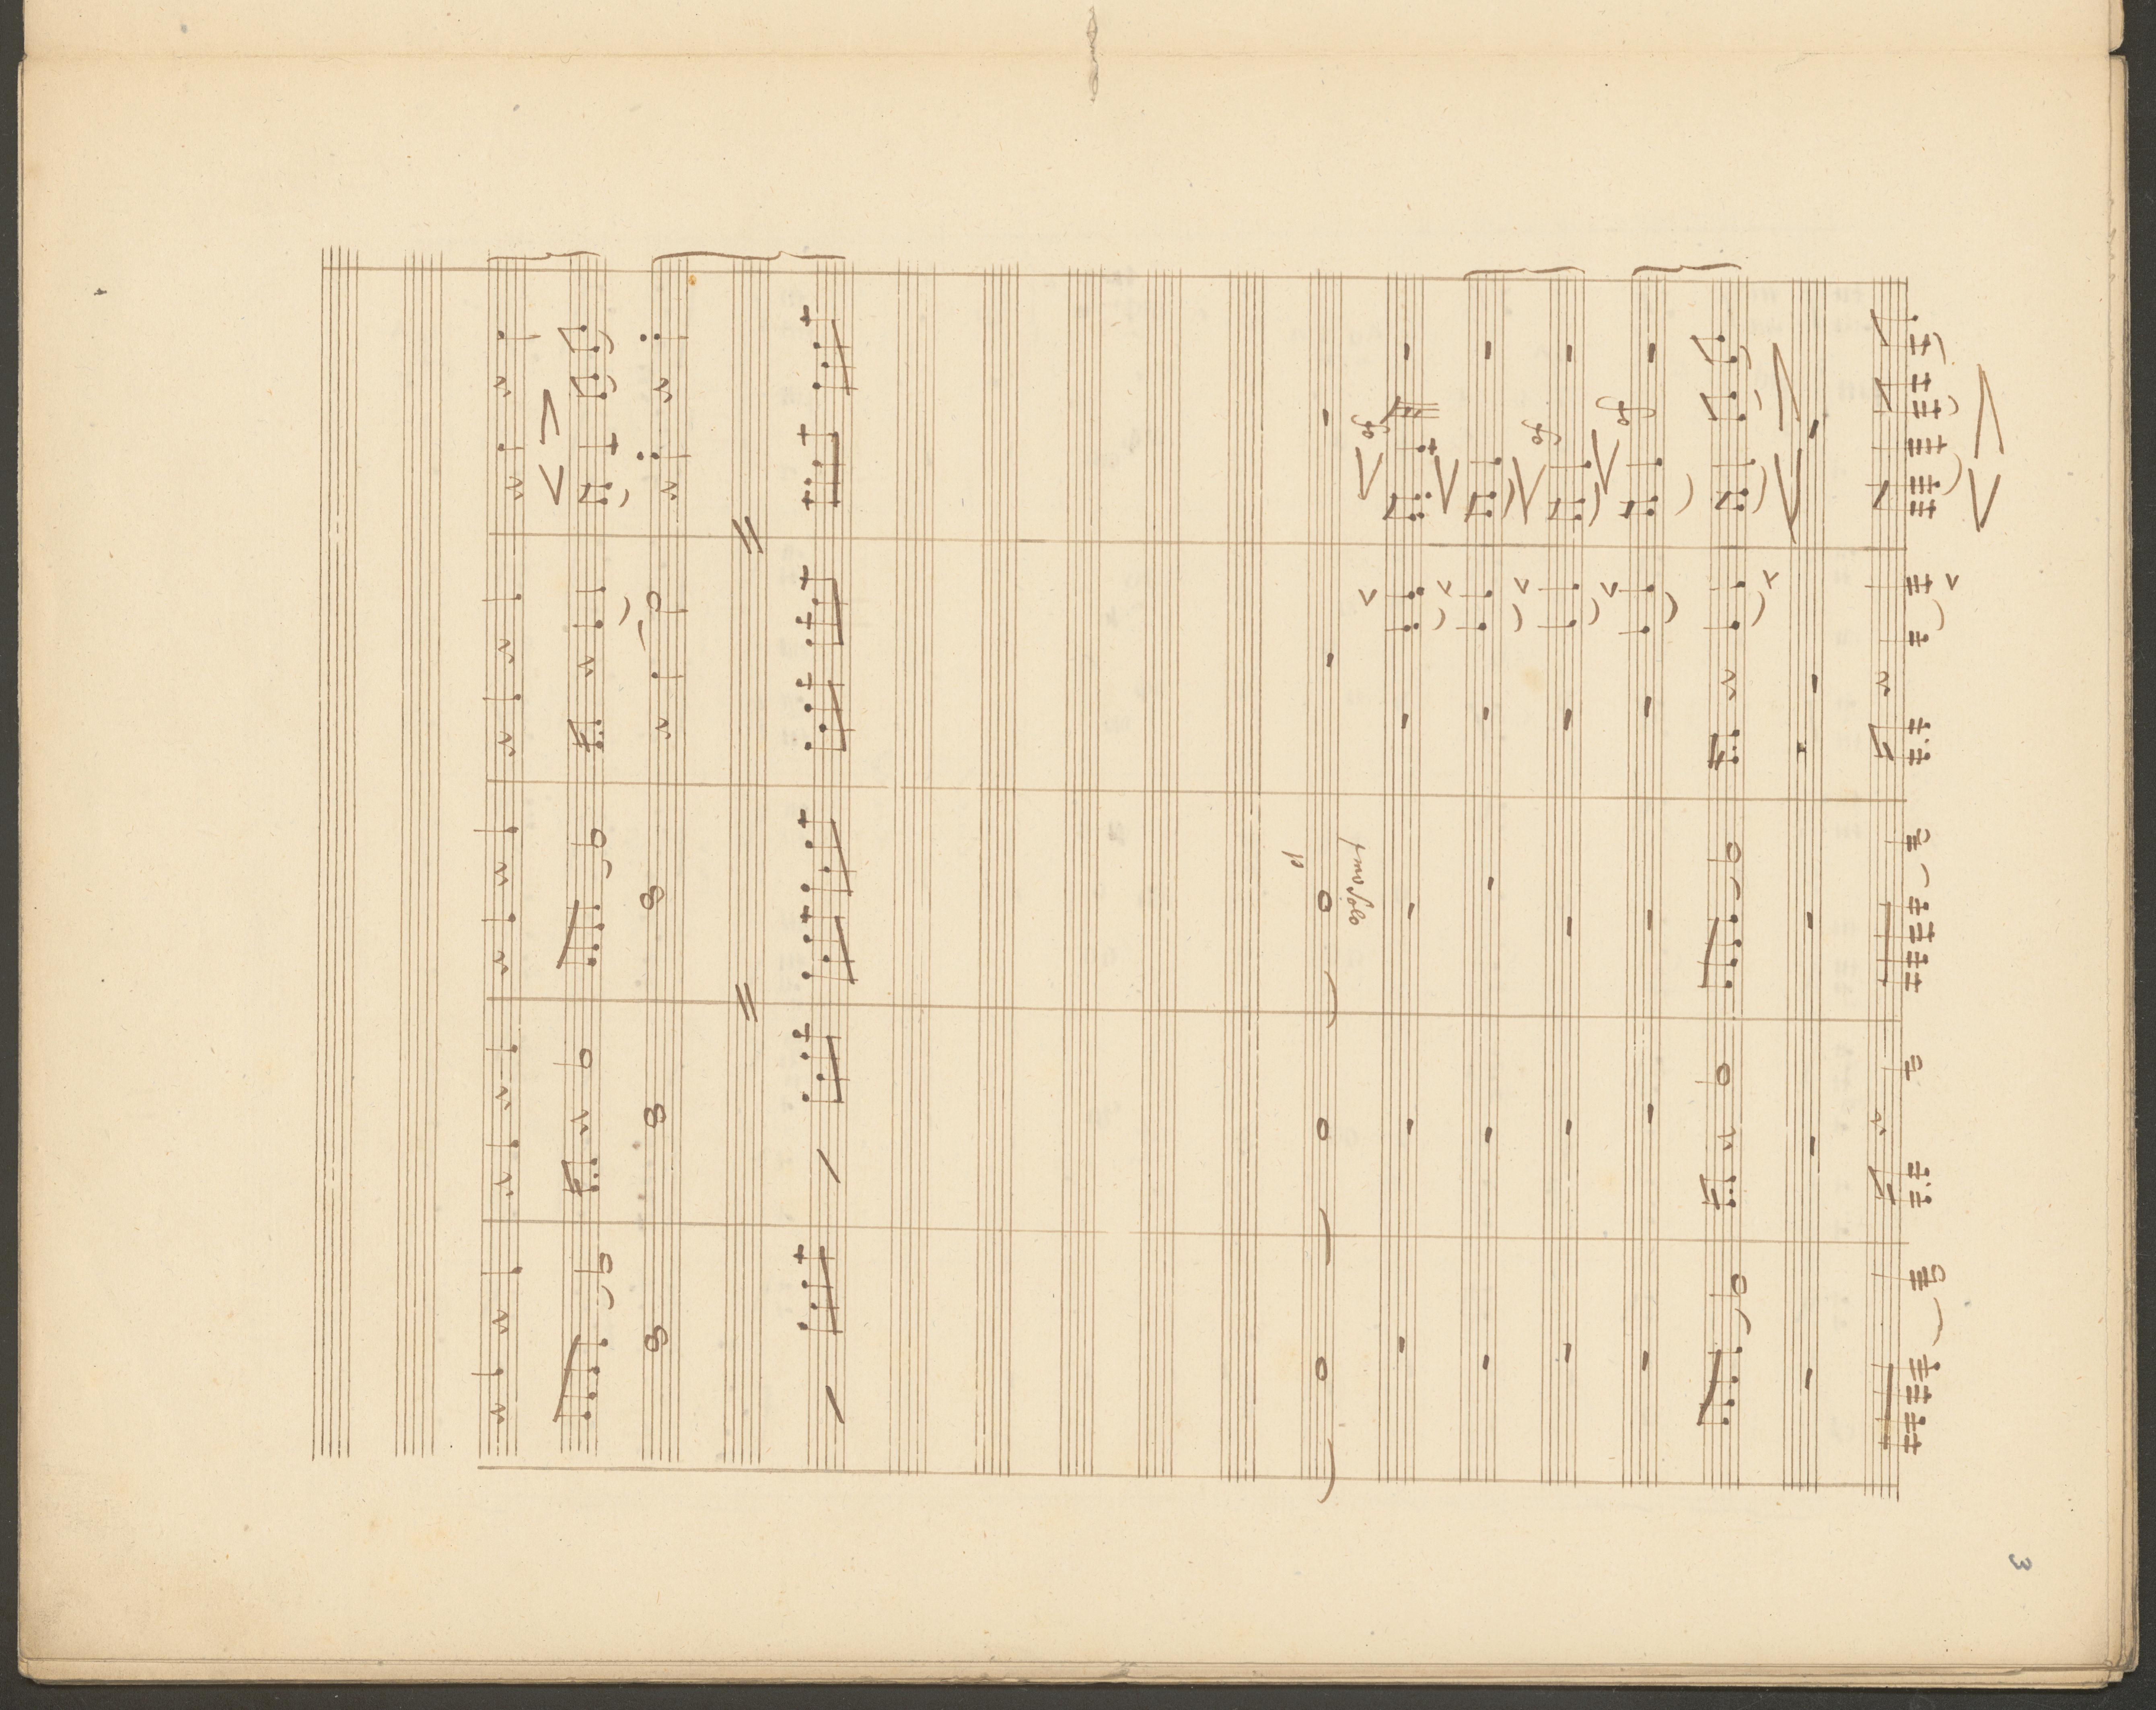 3
fp
fp
fp
1mo Solo
p